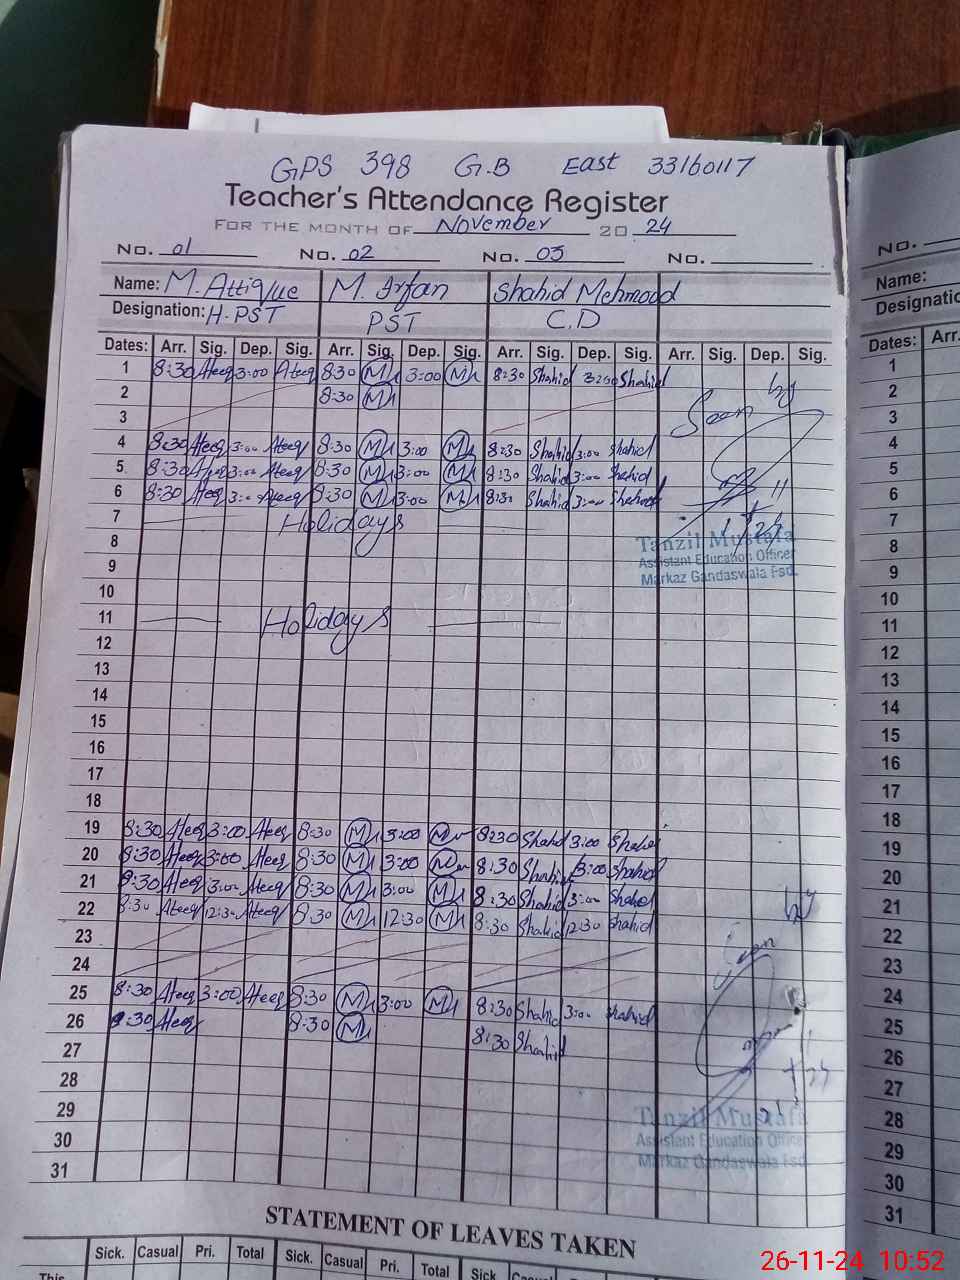 GPS 398 G.B East 33160117
Teacher's Attendance Register
FOR THE MONTH OF November 20 24
No. 01 No. 02 No. 03 No.
Name: M. Attique M. Irfan Shahid Mehmood
Designation: H.PST PST C.D
Dates: Arr. Sig. Dep. Sig. Arr. Sig. Dep. Sig. Arr. Sig. Dep. Sig. Arr. Sig. Dep. Sig.
1 8:30 Ateeq 3:00 Ateeq 8:30 3:00 8:30 Shahid 3:00 Shahid
2 8:30
3
Seen by
4 8:30 Ateeq 3:00 Ateeq 8:30 3:00 8:30 Shahid 3:00 Shahid
5 8:30 Ateeq 3:00 Ateeq 8:30 3:00 8:30 Shahid 3:00 Shahid
6 8:30 Ateeq 3:00 Ateeq 8:30 3:00 8:30 Shahid 3:00 Shahid
7 Holidays
8
Tanzil Mustafa
Assistant Education Officer
Markaz Gandaswala Fsd.
9
10
11 Holidays
12
13
14
15
16
17
18
19 8:30 Ateeq 3:00 Ateeq 8:30 3:00 8:30 Shahid 3:00 Shahid
20 8:30 Ateeq 3:00 Ateeq 8:30 3:00 8:30 Shahid 3:00 Shahid
21 8:30 Ateeq 3:00 Ateeq 8:30 3:00 8:30 Shahid 3:00 Shahid
22 8:30 Ateeq 12:30 Ateeq 8:30 12:30 8:30 Shahid 12:30 Shahid
23
Seen by
24
25 8:30 Ateeq 3:00 Ateeq 8:30 3:00 8:30 Shahid 3:00 Shahid
26 8:30 Ateeq 8:30 8:30 Shahid
27
28
29
Tanzil Mustafa
Assistant Education Officer
Markaz Gandaswala Fsd
30
31
STATEMENT OF LEAVES TAKEN
Sick. Casual Pri. Total Sick. Casual Pri. Total Sick Casual Pri.
This
No.
Name:
Designatio
Dates: Arr.
1
2
3
4
5
6
7
8
9
10
11
12
13
14
15
16
17
18
19
20
21
22
23
24
25
26
27
28
29
30
31
26-11-24 10:52